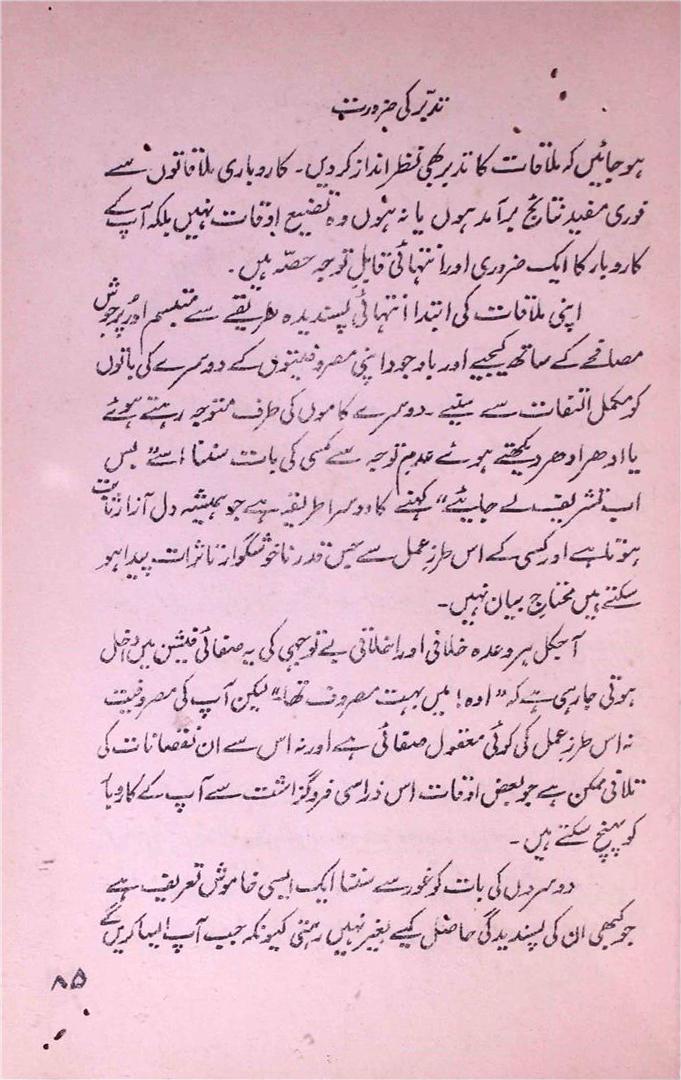 تدبّر کی ضرورت
ہو جائیں کہ ملاقات کا تدبر بھی نظر انداز کر دیں۔ کاروباری ملاقاتوں سے
فوری مفید نتائج برآمد ہوں یا نہ ہوں وہ تضیع اوقات نہیں بلکہ آپ کے
کاروبار کا ایک ضروری اور انتہائی قابلِ توجہ حصّہ ہیں۔
اپنی ملاقات کی ابتدا انتہائی پسندیدہ طریقے سے متبسم اور پُرجوش
مصافحے کے ساتھ کیجیے اور باوجود اپنی مصروفیتوں کے دوسرے کی باتوں
کو مکمل التفات سے سنیے۔ دوسرے کاموں کی طرف متوجہ رہتے ہوئے
یا ادھر ادھر دیکھتے ہوئے عدم توجہ سے کسی کی بات سننا اسے "بس
اب تشریف لے جایئے" کہنے کا دوسرا طریقہ ہے جو ہمیشہ دل آزار ثابت
ہوتا ہے اور کسی کے اس طرزِ عمل سے جس قدر ناخوشگوار تاثرات پیدا ہو
سکتے ہیں محتاجِ بیان نہیں۔
آجکل ہر وعدہ خلافی اور اخلاقی بے توجہی کی یہ صفائی فیشن میں داخل
ہوتی جا رہی ہے کہ "اوہ! میں بہت مصروف تھا۔" لیکن آپ کی مصروفیت
نہ اس طرزِ عمل کی کوئی معقول صفائی ہے اور نہ اس سے ان نقصانات کی
تلافی ممکن ہے جو بعض اوقات اس ذراسی فروگزاشت سے آپ کے کاروبار
کو پہنچ سکتے ہیں۔
دوسروں کی بات کو غور سے سننا ایک ایسی خاموش تعریف ہے
جو کبھی ان کی پسندیدگی حاصل کیے بغیر نہیں رہتی کیونکہ جب آپ ایسا کریں گے
۸۵